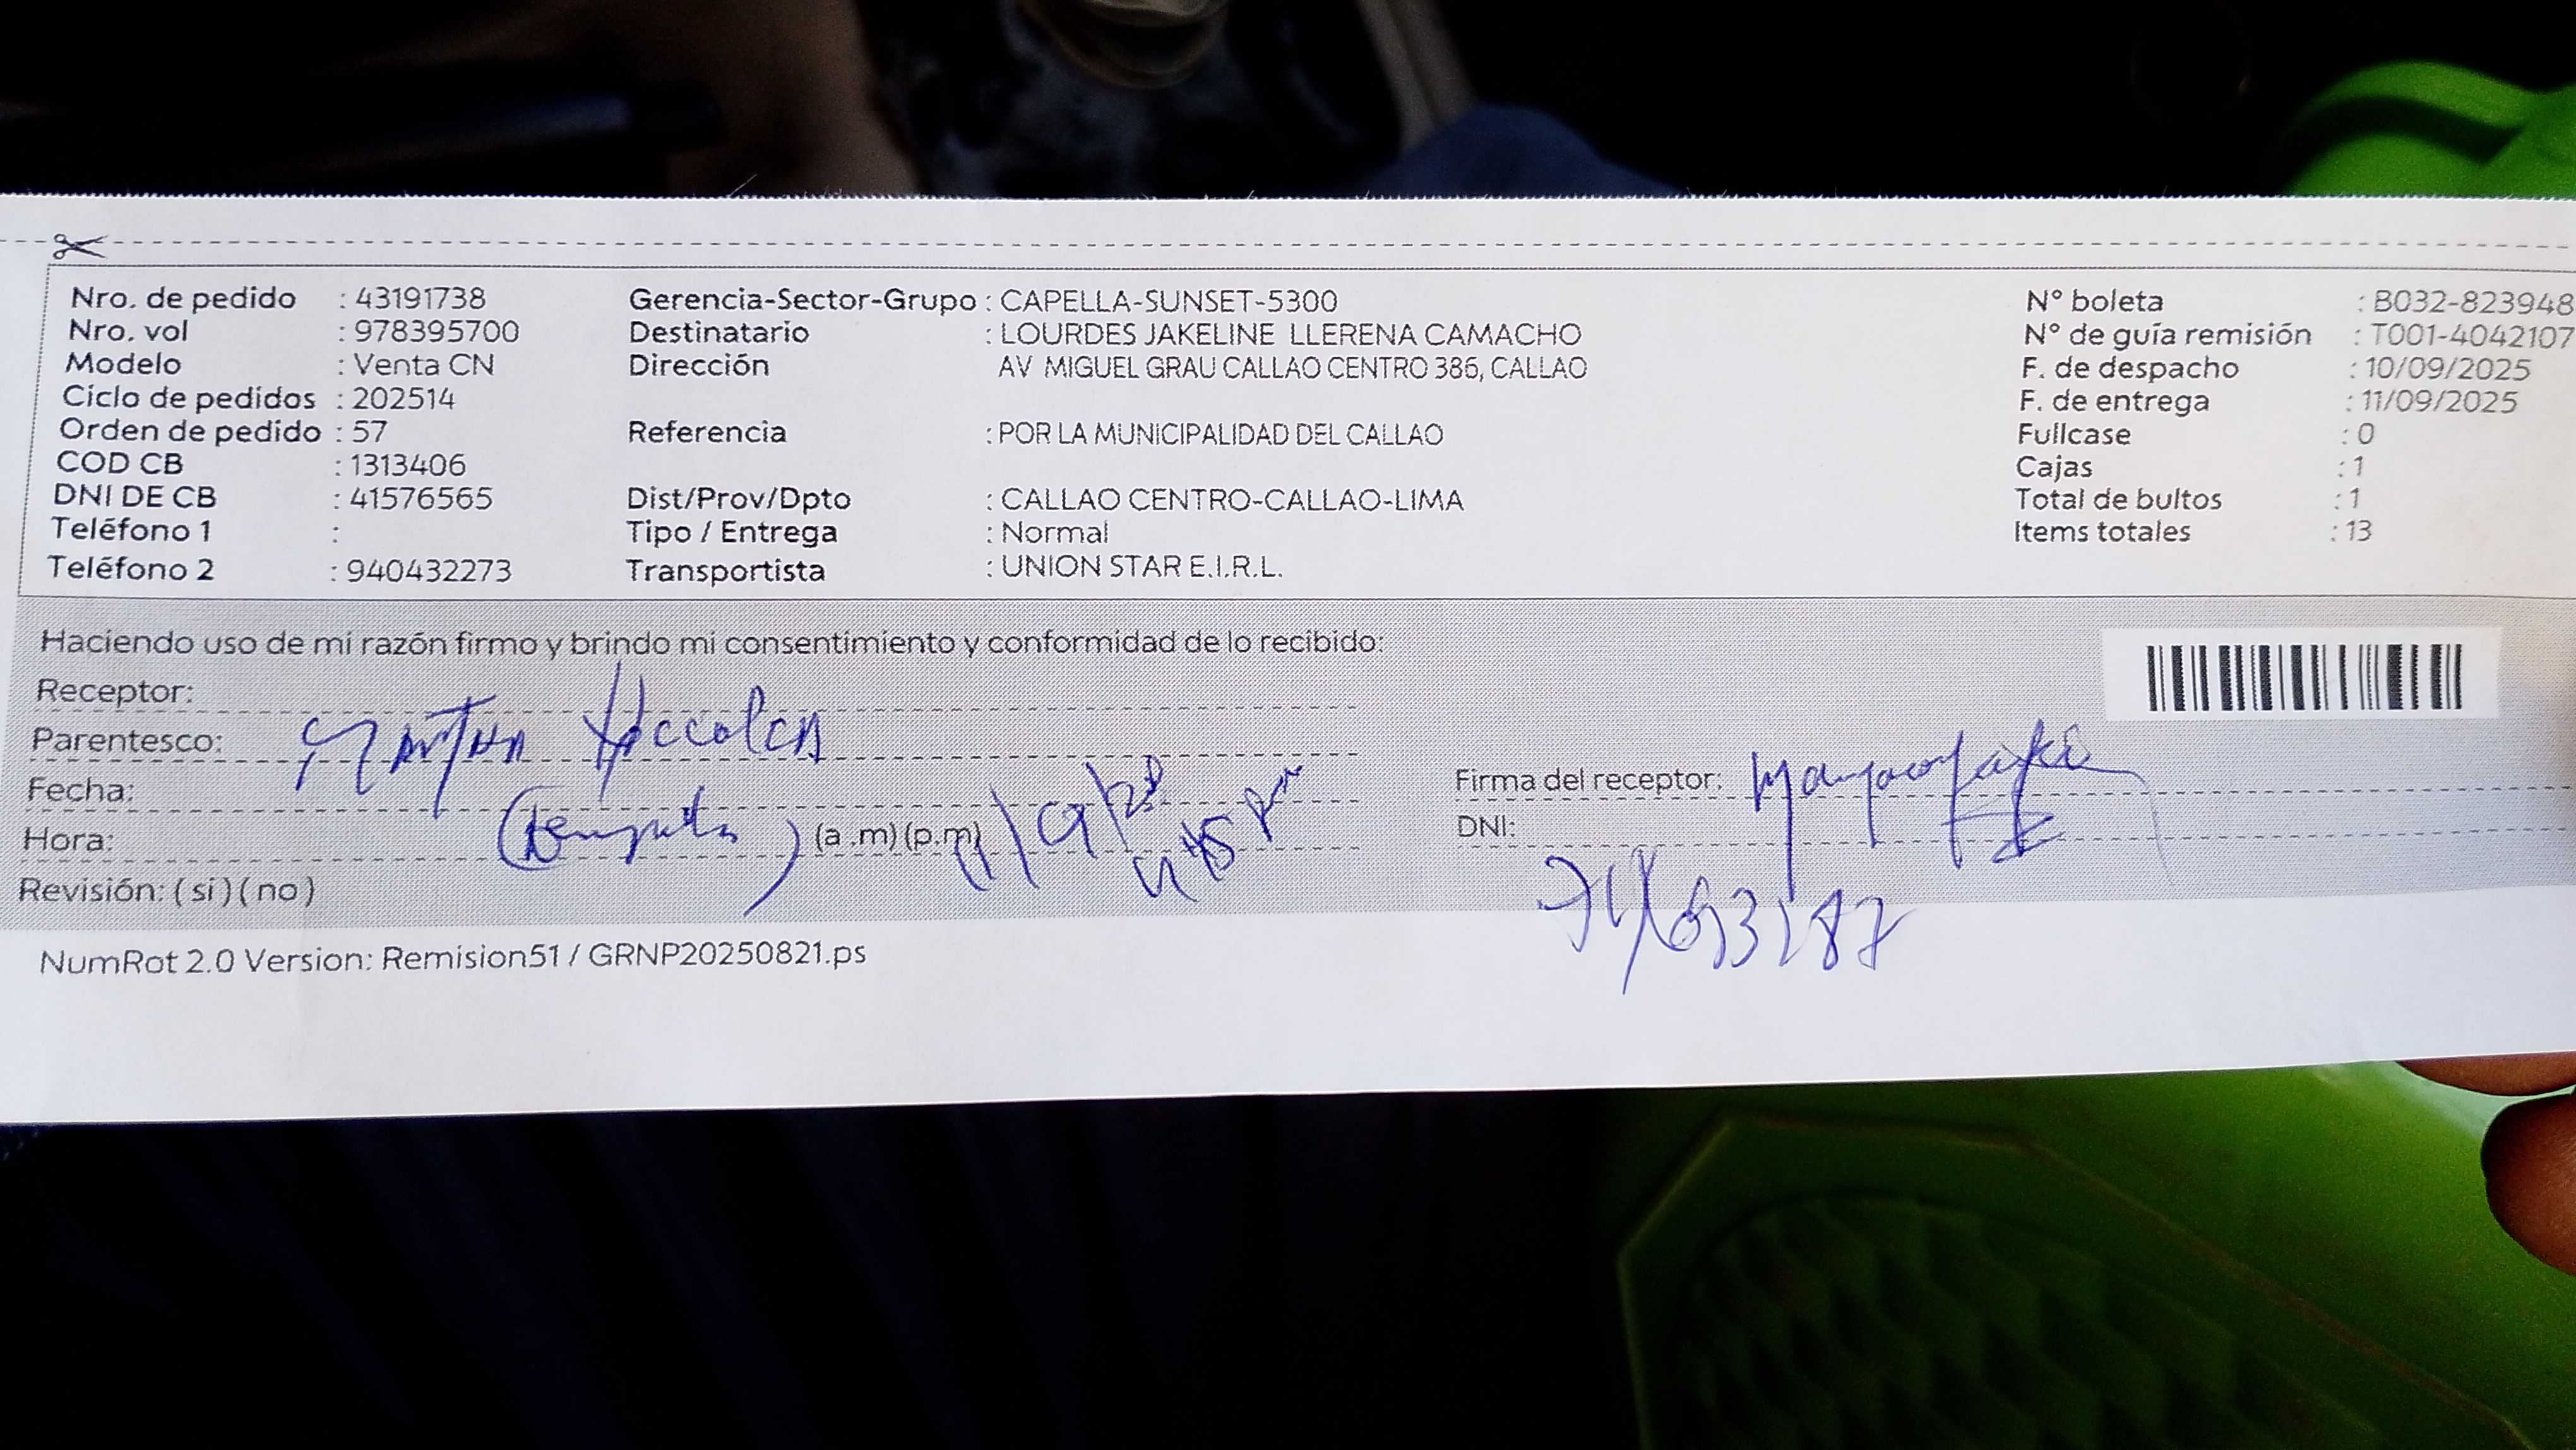 Nro. de pedido : 43191738 Gerencia-Sector-Grupo : CAPELLA-SUNSET-5300 N° boleta : B032-823948
Nro. vol : 978395700 Destinatario : LOURDES JAKELINE LLERENA CAMACHO N° de guía remisión : T001-4042107
Modelo : Venta CN Dirección AV MIGUEL GRAU CALLAO CENTRO 386, CALLAO F. de despacho : 10/09/2025
Ciclo de pedidos : 202514 F. de entrega : 11/09/2025
Orden de pedido : 57 Referencia : POR LA MUNICIPALIDAD DEL CALLAO Fullcase : 0
COD CB : 1313406 Cajas : 1
DNI DE CB : 41576565 Dist/Prov/Dpto : CALLAO CENTRO-CALLAO-LIMA Total de bultos : 1
Teléfono 1 : Tipo / Entrega : Normal Items totales : 13
Teléfono 2 : 940432273 Transportista : UNION STAR E.I.R.L.
Haciendo uso de mi razón firmo y brindo mi consentimiento y conformidad de lo recibido:
Receptor:
Parentesco:
Fecha: Firma del receptor:
Hora: (a .m) (p.m) DNI:
Revisión: ( si ) ( no )
NumRot 2.0 Version: Remision51 / GRNP20250821.ps